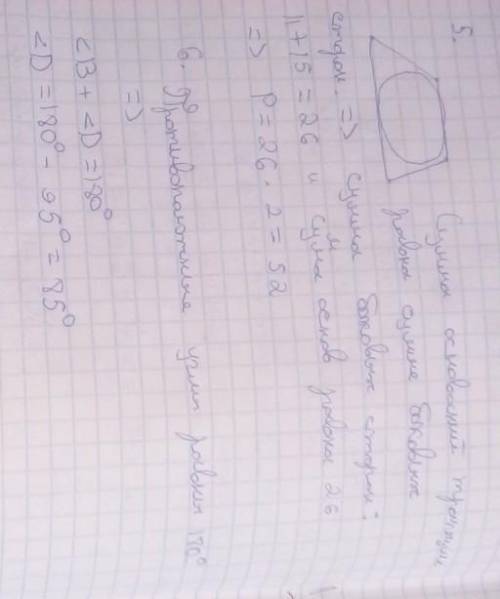 5. Сумма оснований трапеции
равна сумме боковых
сторон. => сумма боковых сторон:
11+15=26 и сумма основ равна 26
=> P=26·2=52
6. Противоположные углы равны 180°
=>
<B+<D=180°
<D=180°-95°=85°